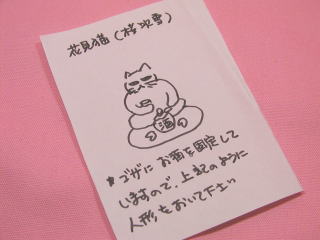 花見猫(桜吹雪)
酒
*ゴザに お酒を固定して
しますので、上記のように
人形をおいて下さい